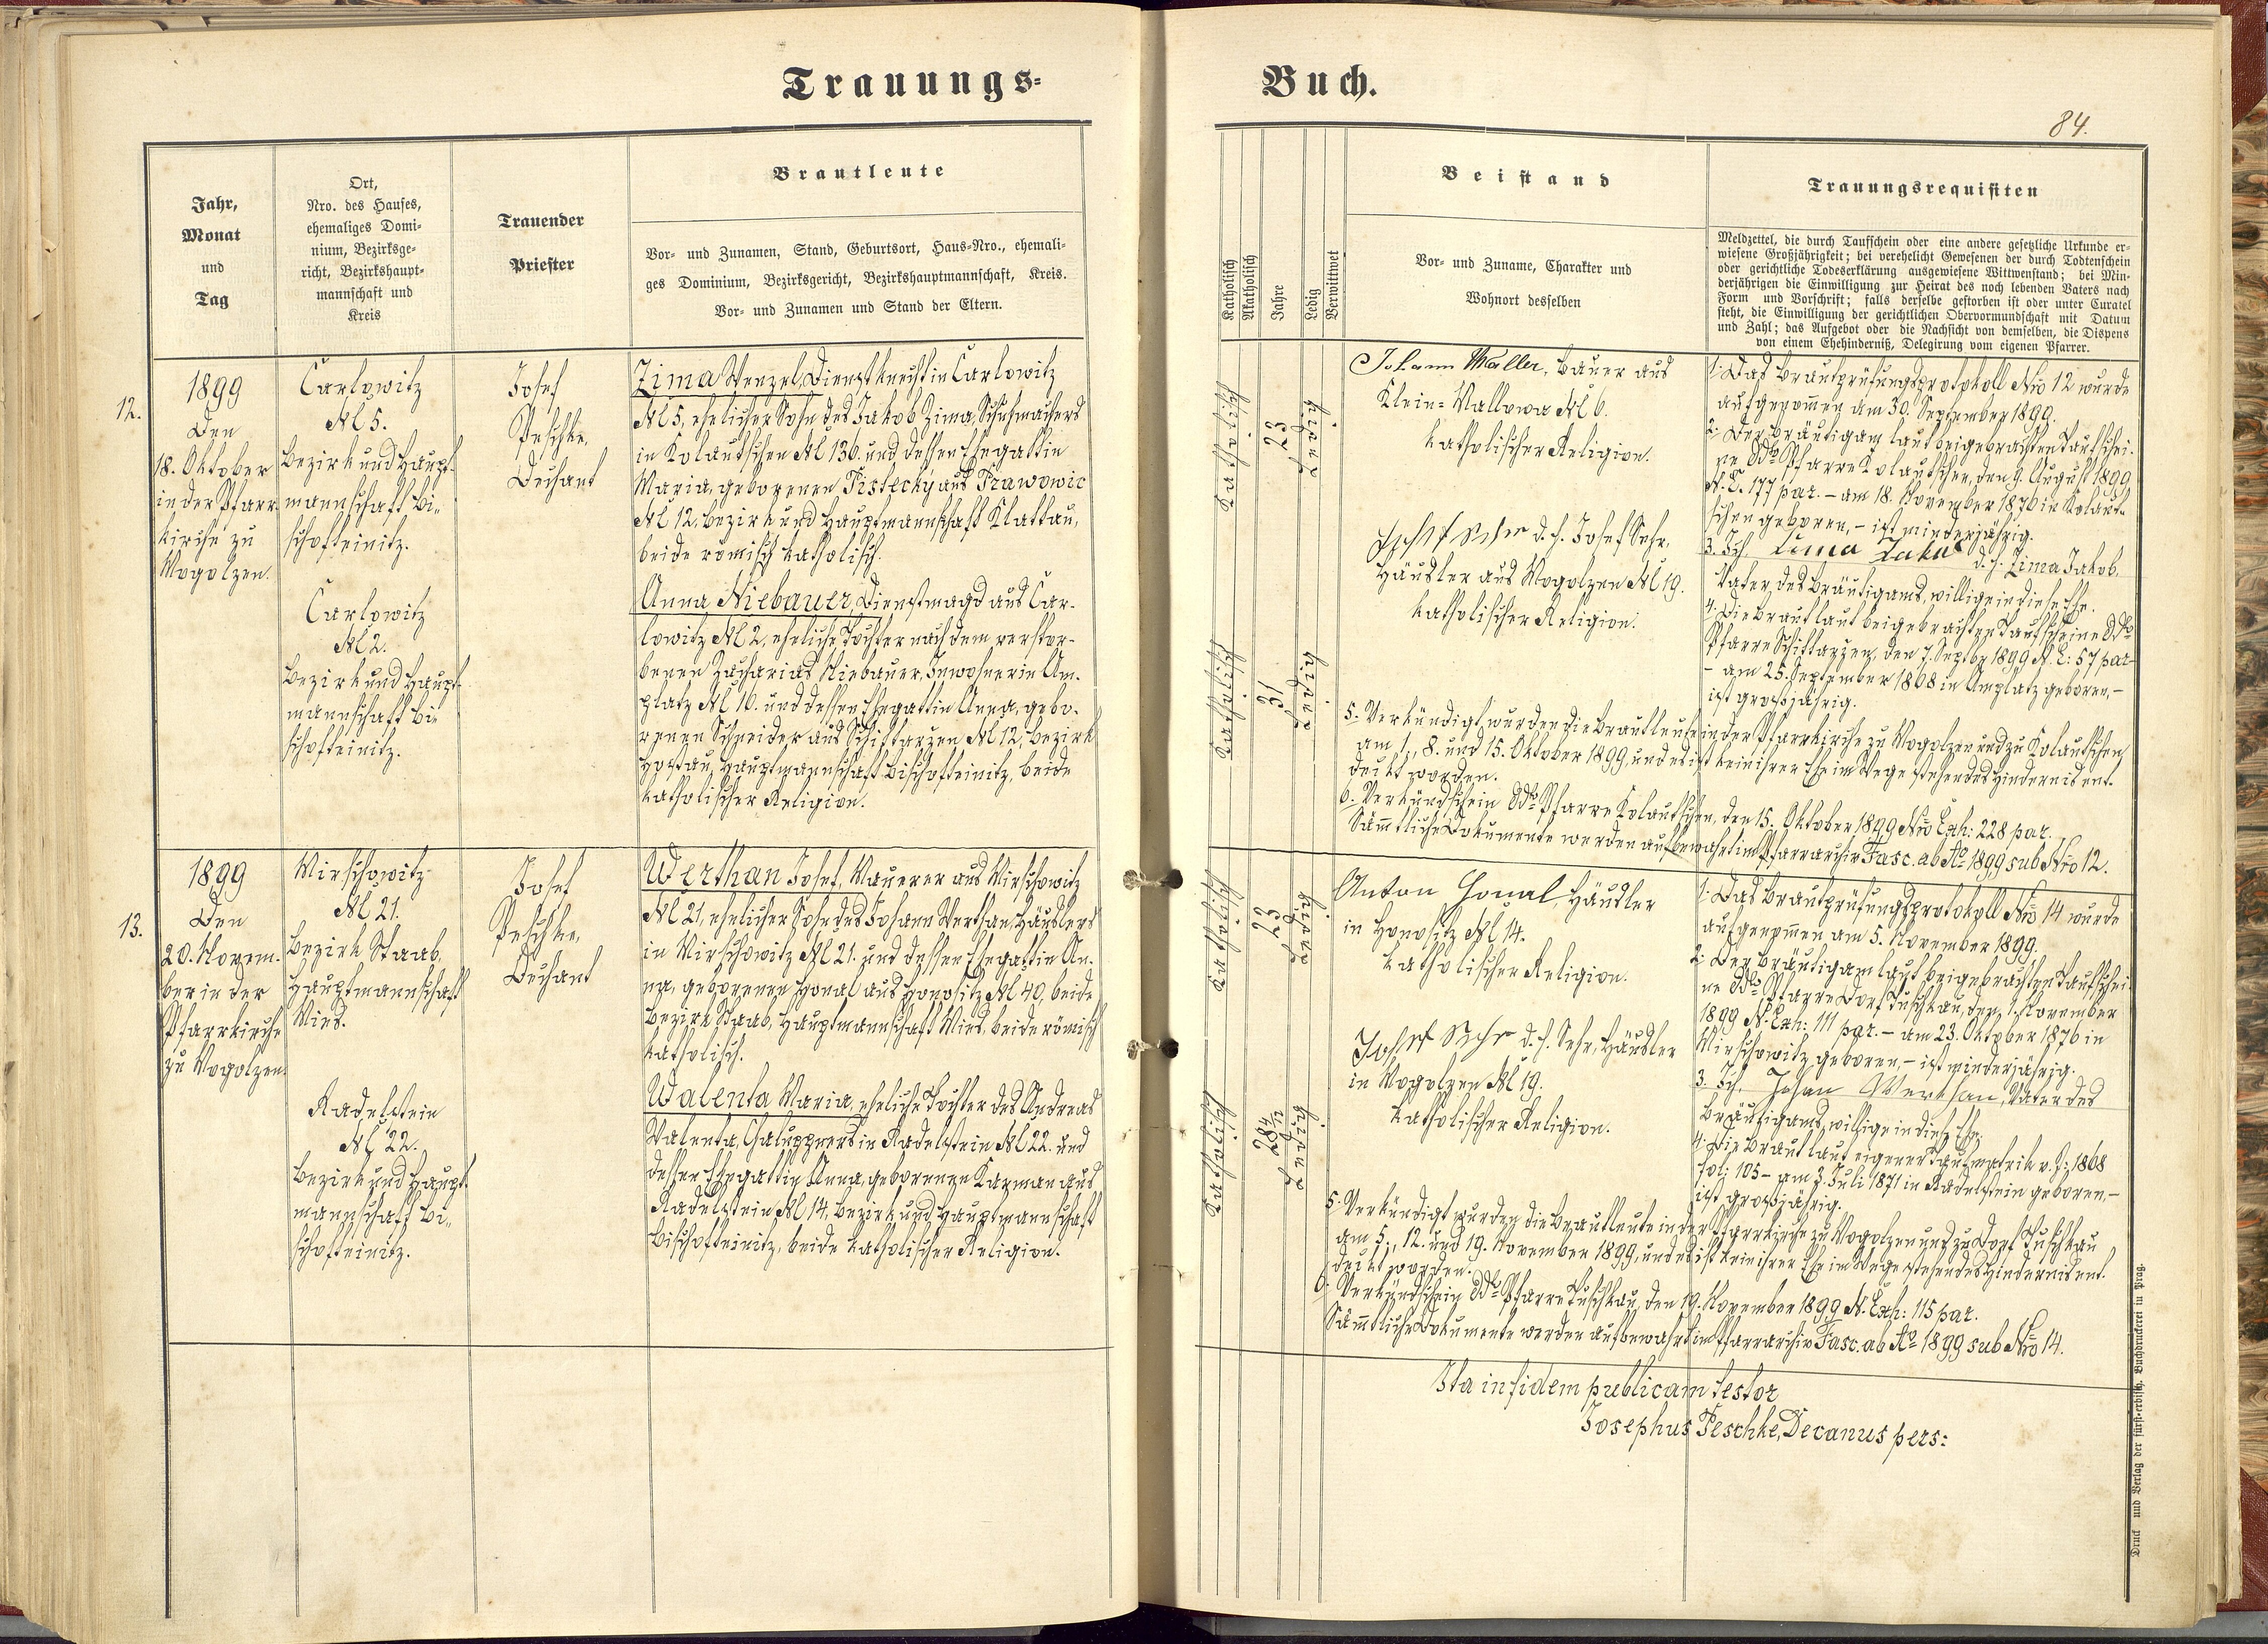 Trauungs-
Buch.
84.
Jahr,
Monat
und
Tag
Ort,
Nro. des Hauses,
ehemaliges Domi-
nium, Bezirksge-
richt, Bezirkshaupt-
mannschaft und
Kreis
Trauender
Priester
Brautleute
Vor- und Zunamen, Stand, Geburtsort, Haus-Nro., ehemali-
ges Dominium, Bezirksgericht, Bezirkshauptmannschaft, Kreis.
Vor- und Zunamen und Stand der Eltern.
Katholisch
Akatholisch
Jahre
Ledig
Verwittwet
Beistand
Vor- und Zuname, Charakter und
Wohnort desselben
Trauungsrequisiten
Meldzettel, die durch Taufschein oder eine andere gesetzliche Urkunde er-
wiesene Großjährigkeit; bei verehelicht Gewesenen der durch Todtenschein
oder gerichtliche Todeserklärung ausgewiesene Wittwenstand; bei Min-
derjährigen die Einwilligung zur Heirat des noch lebenden Vaters nach
Form und Vorschrift; falls derselbe gestorben ist oder unter Curatel
steht, die Einwilligung der gerichtlichen Obervormundschaft mit Datum
und Zahl; das Aufgebot oder die Nachsicht von demselben, die Dispens
von einem Ehehinderniß, Delegirung vom eigenen Pfarrer.
12.
1899
Den
18. Oktober
in der Pfarr-
kirche zu
Mogolzen.
Carlowitz
Nl 5.
Bezirk und Haupt-
mannschaft Bi-
schofteinitz.
Carlowitz
Nl 2.
Bezirk und Haupt-
mannschaft Bi-
schofteinitz.
Josef
Peschke,
Dechant
Zima Wenzel, Dienstknecht in Carlowitz
Nl 5, ehelicher Sohn des Jakob Zima, Schuhmachers
in Kolautschen Nl 136. und dessen Ehegattin
Maria, geborenen Tistecky aus Prawowic
Nl 12, Bezirk und Hauptmannschaft Klattau,
beide römisch katholisch.
Anna Niebauer, Dienstmagd aus Car-
lowitz Nl 2, eheliche Tochter nach dem verstor-
benen Zacharias Niebauer, Inwohner in Am-
platz Nl 16. und dessen Ehegattin Anna, gebo-
renen Schneider aus Schittarzen Nl 12, Bezirk
Hostau, Hauptmannschaft Bischofteinitz, beide
katholischer Religion.
Katholisch
23
Ledig
Katholisch
31
Ledig
Johann Maller, Bauer aus
Klein-Mallowa Nl 6.
katholischer Religion.
Josef Sehr d. h. Josef Sehr,
Häusler aus Mogolzen Nl 19.
katholischer Religion.
1. Das Brautprüfungsprotokoll Nro 12 wurde
aufgenommen am 30. September 1899.
2. Der Bräutigam laut beigebrachten Taufschei-
ne ddo Pfarre Kolautschen, den 9. August 1899
N. E. 177 par. - am 18. November 1876 in Kolaut-
schen geboren, - ist minderjährig.
3. Ich, Zima Jakub d. h. Zima Jakob,
Vater des Bräutigams, willige in diese Ehe.
4. Die Braut laut beigebrachten Taufscheine ddo
Pfarre Schittarzen, den 7. Septbr 1899 N. E: 57 par
- am 25. September 1868 in Amplatz geboren, -
ist großjährig.
5. Verkündigt wurden die Brautleute in der Pfarrkirche zu Mogolzen und zu Kolautschen
am 1., 8. und 15. Oktober 1899, und es ist kein ihrer Ehe im Wege stehendes Hindernis ent-
deckt worden.
6. Verkündschein ddo Pfarre Kolautschen, den 15. Oktober 1899 Nro Exh: 228 par.
Sämmtliche Dokumente werden aufbewahrt im Pfarrarchiv Fasc. ab Ao 1899 sub Nro 12.
13.
1899
Den
20. Novem-
ber in der
Pfarrkirche
zu Mogolzen.
Mirschowitz
Nl 21.
Bezirk Staab,
Hauptmannschaft
Mies.
Radelstein
Nl 22.
Bezirk und Haupt-
mannschaft Bi-
schofteinitz.
Josef
Peschke,
Dechant
Werthan Josef, Maurer aus Mirschowitz
Nl 21, ehelicher Sohn des Johann Werthan, Häuslers
in Mirschowitz Nl 21. und dessen Ehegattin An-
na, geborenen Honal aus Honositz Nl 40, beide
Bezirk Staab, Hauptmannschaft Mies, beide römisch
katholisch.
Walenta Maria, eheliche Tochter des Andreas
Walenta, Chaluppners in Radelstein Nl 22. und
dessen Ehegattin Anna, geborenen Karman aus
Radelstein Nl 14, Bezirk und Hauptmannschaft
Bischofteinitz, beide katholischer Religion.
Katholisch
23
Ledig
Katholisch
28 4/12
Ledig
Anton Honal, Häusler
in Honositz Nl 14.
katholischer Religion.
Josef Sehr d. h. Sehr, Häusler
in Mogolzen Nl 19.
katholischer Religion.
1. Das Brautprüfungsprotokoll Nro 14 wurde
aufgenommen am 5. November 1899.
2. Der Bräutigam laut beigebrachten Taufschei-
ne ddo Pfarre Dorf Tuschkau, den 1. November
1899 N. Exh: 111 par. - am 23. Oktober 1876 in
Mirschowitz geboren, - ist minderjährig.
3. Ich, Johan Werthan, Vater des
Bräutigams, willige in diese Ehe.
4. Die Braut laut eigener Taufmatrik v. J. 1868
fol: 105 - am 3. Juli 1871 in Radelstein geboren, -
ist großjährig.
5. Verkündigt wurden die Brautleute in der Pfarrkirche zu Mogolzen und zu Dorf Tuschkau
am 5., 12. und 19. November 1899, und es ist kein ihrer Ehe im Wege stehendes Hindernis ent-
deckt worden.
6. Verkündschein ddo Pfarre Tuschkau, den 19. November 1899 N. Exh: 115 par.
Sämmtliche Dokumente werden aufbewahrt im Pfarrarchiv Fasc. ab Ao 1899 sub Nro 14.
Ita in fidem publicam testor
Josephus Peschke, Decanus pers:
Druck und Verlag der fürst-erzbisch. Buchdruckerei in Prag.